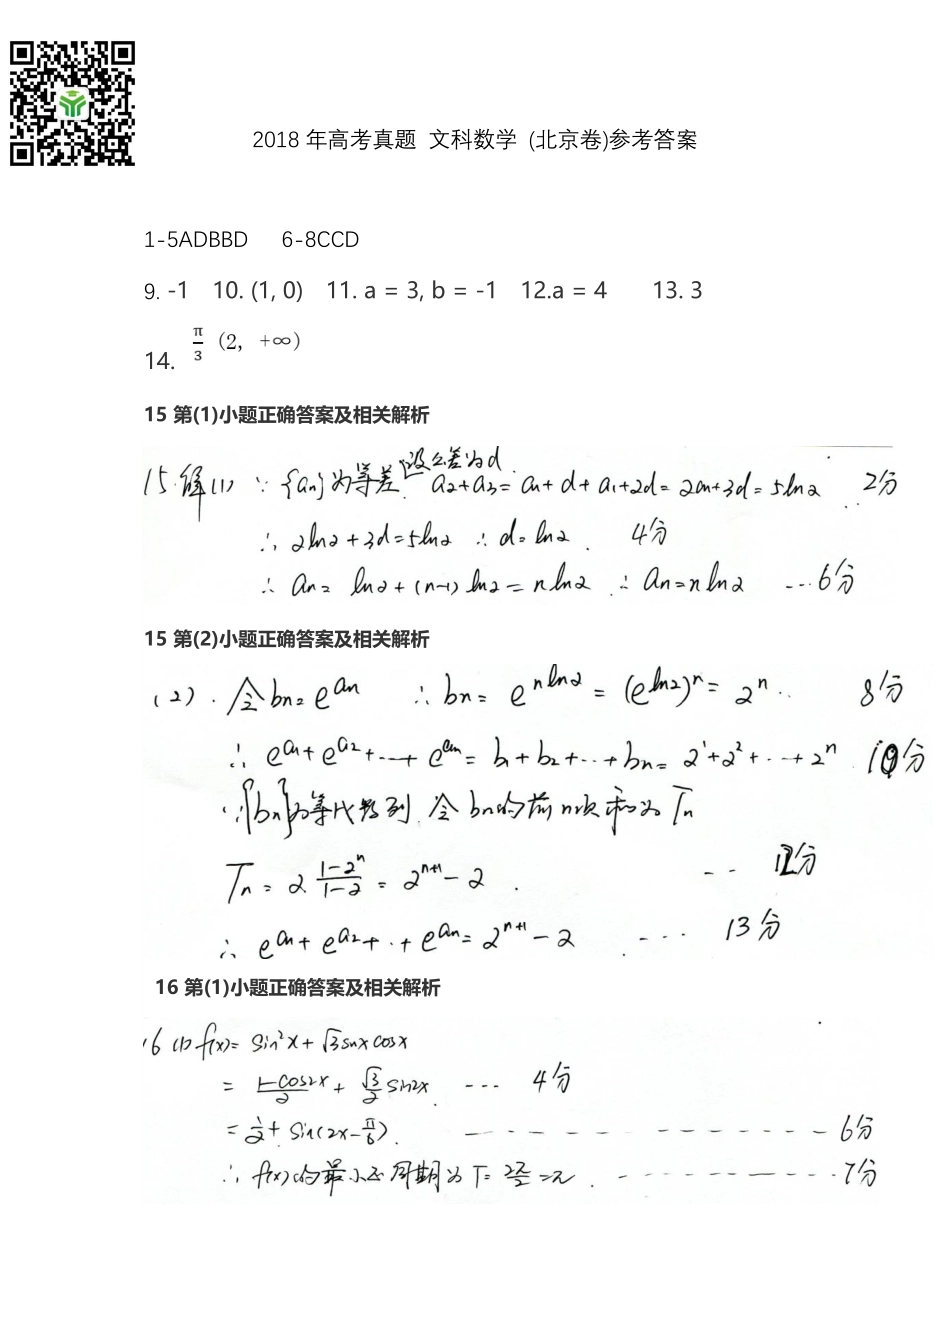 2018 年高考真题 文科数学 (北京卷)参考答案
1-5ADBBD 6-8CCD
9. -1 10. (1, 0) 11. a = 3, b = -1 12.a = 4 13. 3
14. π/3 (2, +∞)
15 第(1)小题正确答案及相关解析
15.解(1) ∵ {an}为等差 设公差为d. a2+a3= a1+d+a1+2d= 2a1+3d= 5ln2 2分
∴ 2ln2+3d=5ln2 ∴ d=ln2. 4分
∴ an= ln2+(n-1)ln2= nln2 ∴ an=nln2 ---6分
15 第(2)小题正确答案及相关解析
(2). 令bn=e^an ∴ bn= e^nln2 = (e^ln2)^n= 2^n.. 8分
∴ e^a1+e^a2+...+e^an= b1+b2+...+bn= 2^1+2^2+...+2^n 10分
∵{bn}为等比数列. 令bn的前n项和为Tn
Tn= 2 (1-2^n)/(1-2) = 2^(n+1)-2. -- 12分
∴ e^a1+e^a2+..+e^an= 2^(n+1)-2 .--- 13分
16 第(1)小题正确答案及相关解析
16 (1) f(x)= sin²x+√3sinxcosx
= (1-cos2x)/2 + √3/2 sin2x. --- 4分
= 1/2+ sin(2x-π/6). ------------- 6分
∴ f(x)的最小正周期为T= 2π/2 =π. ------------7分